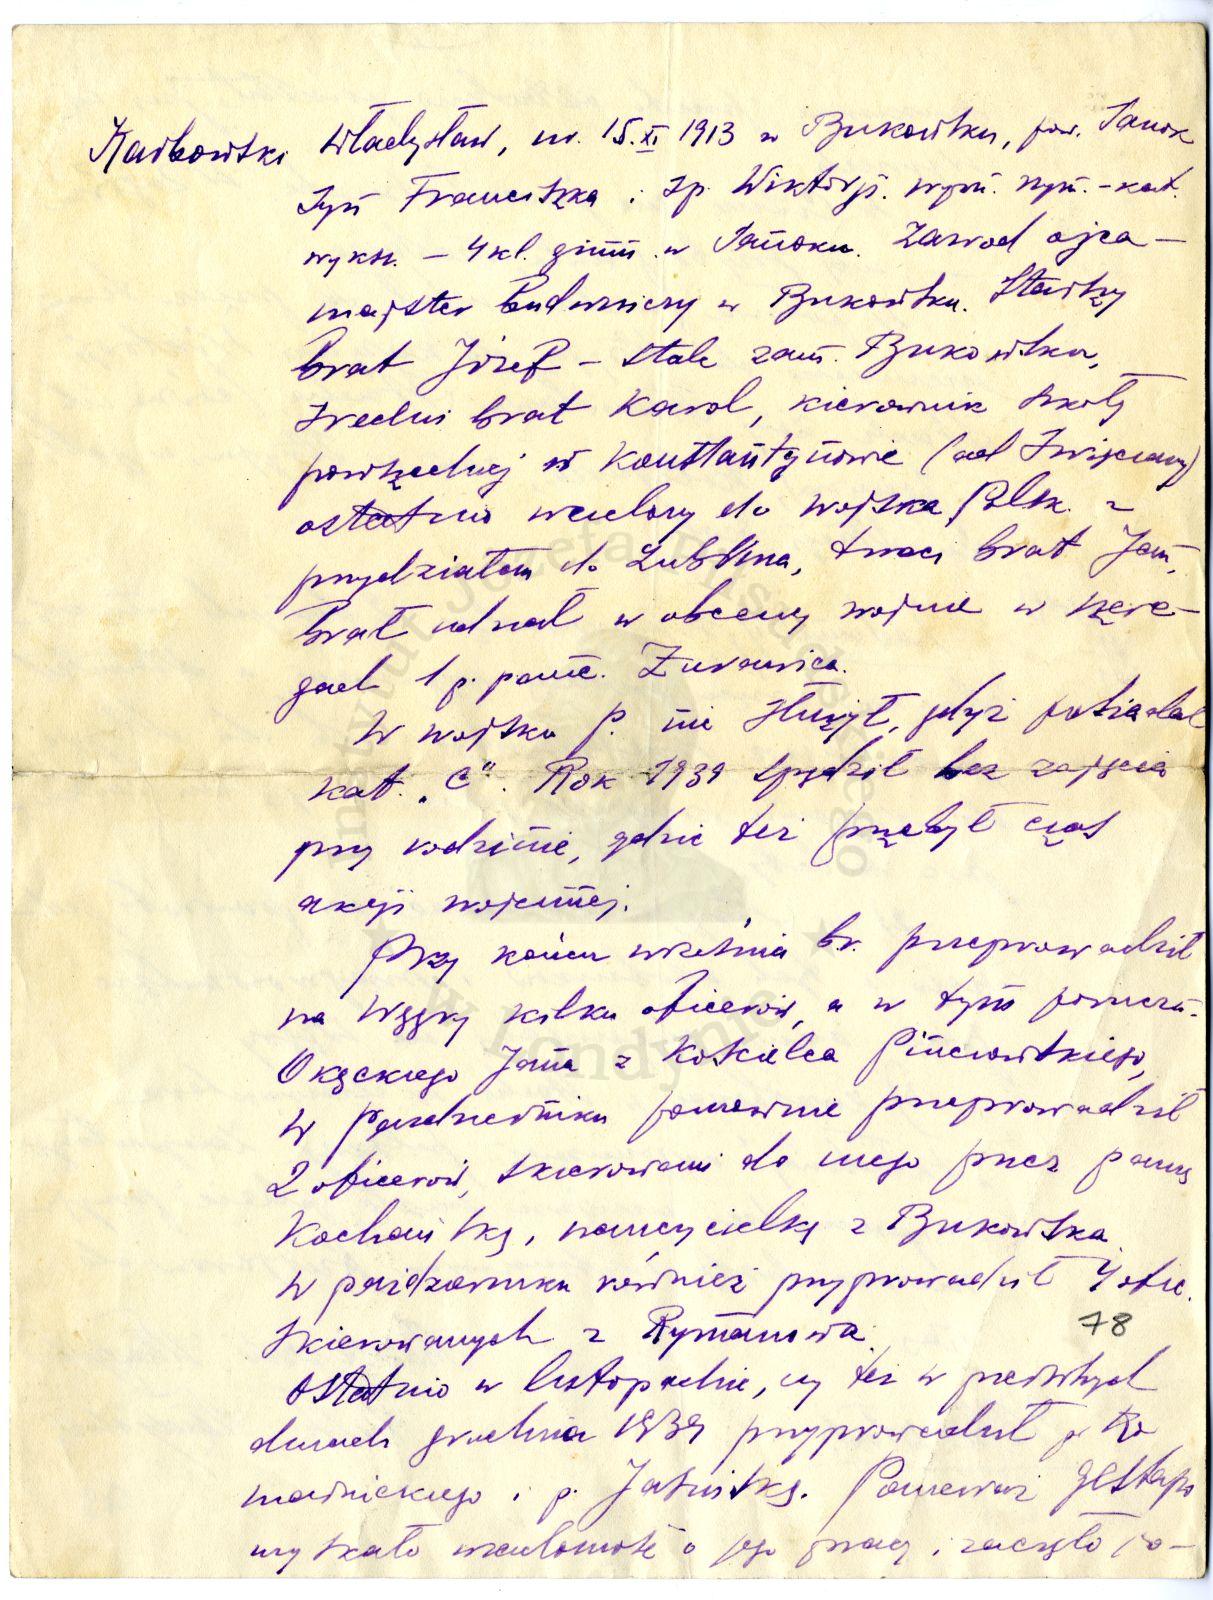 Karbowski Władysław, ur. 15.XI 1913 w Bukowsku, pow. Sanok
syn Franciszka i śp. Wiktorji. wyzn. rzym.-kat.
wykszt. – 4 kl. gimn. w Sanoku. Zawod ojca –
majster budowniczy w Bukowsku. Starszy
brat Józef – stale zam. Bukowsku,
średni brat Karol, kierownik szkoły
powszechnej w Konstantynowie
ostatnio wcielony do wojska Polsk. z
przydziałem do Lublina, trzeci brat Jan,
brał udział w obecnej wojnie w szere-
gach 1 p. panc. Żurawica.
W wojsku P. nie służył, gdyż posiadał
kat. „C". Rok 1939 spędził bez zajęcia
przy rodzinie, gdzie też przebył czas
akcji wojennej.
Przy końcu września br. przeprowadził
na Węgry kilku oficerów, a w tym poruczn.
Okęckiego Jana z Koscielca Pinczowskiego,
w Październiku ponownie przeprowadził
2 oficerów, skierowani do niego przez panią
Kochańską, nauczycielkę z Bukowska.
W październiku również przyprowadził 4 ofic.
skierowanych z Rymanowa.
78
Ostatnio w listopadzie, czy też w pierwszych
dniach grudnia 1939 przyprowadził p.
i p. Ponieważ gestapo
uzyskało wiadomość o jego pracy i zaczęło po-
Instytut Józefa Piłsudskiego
w Londynie